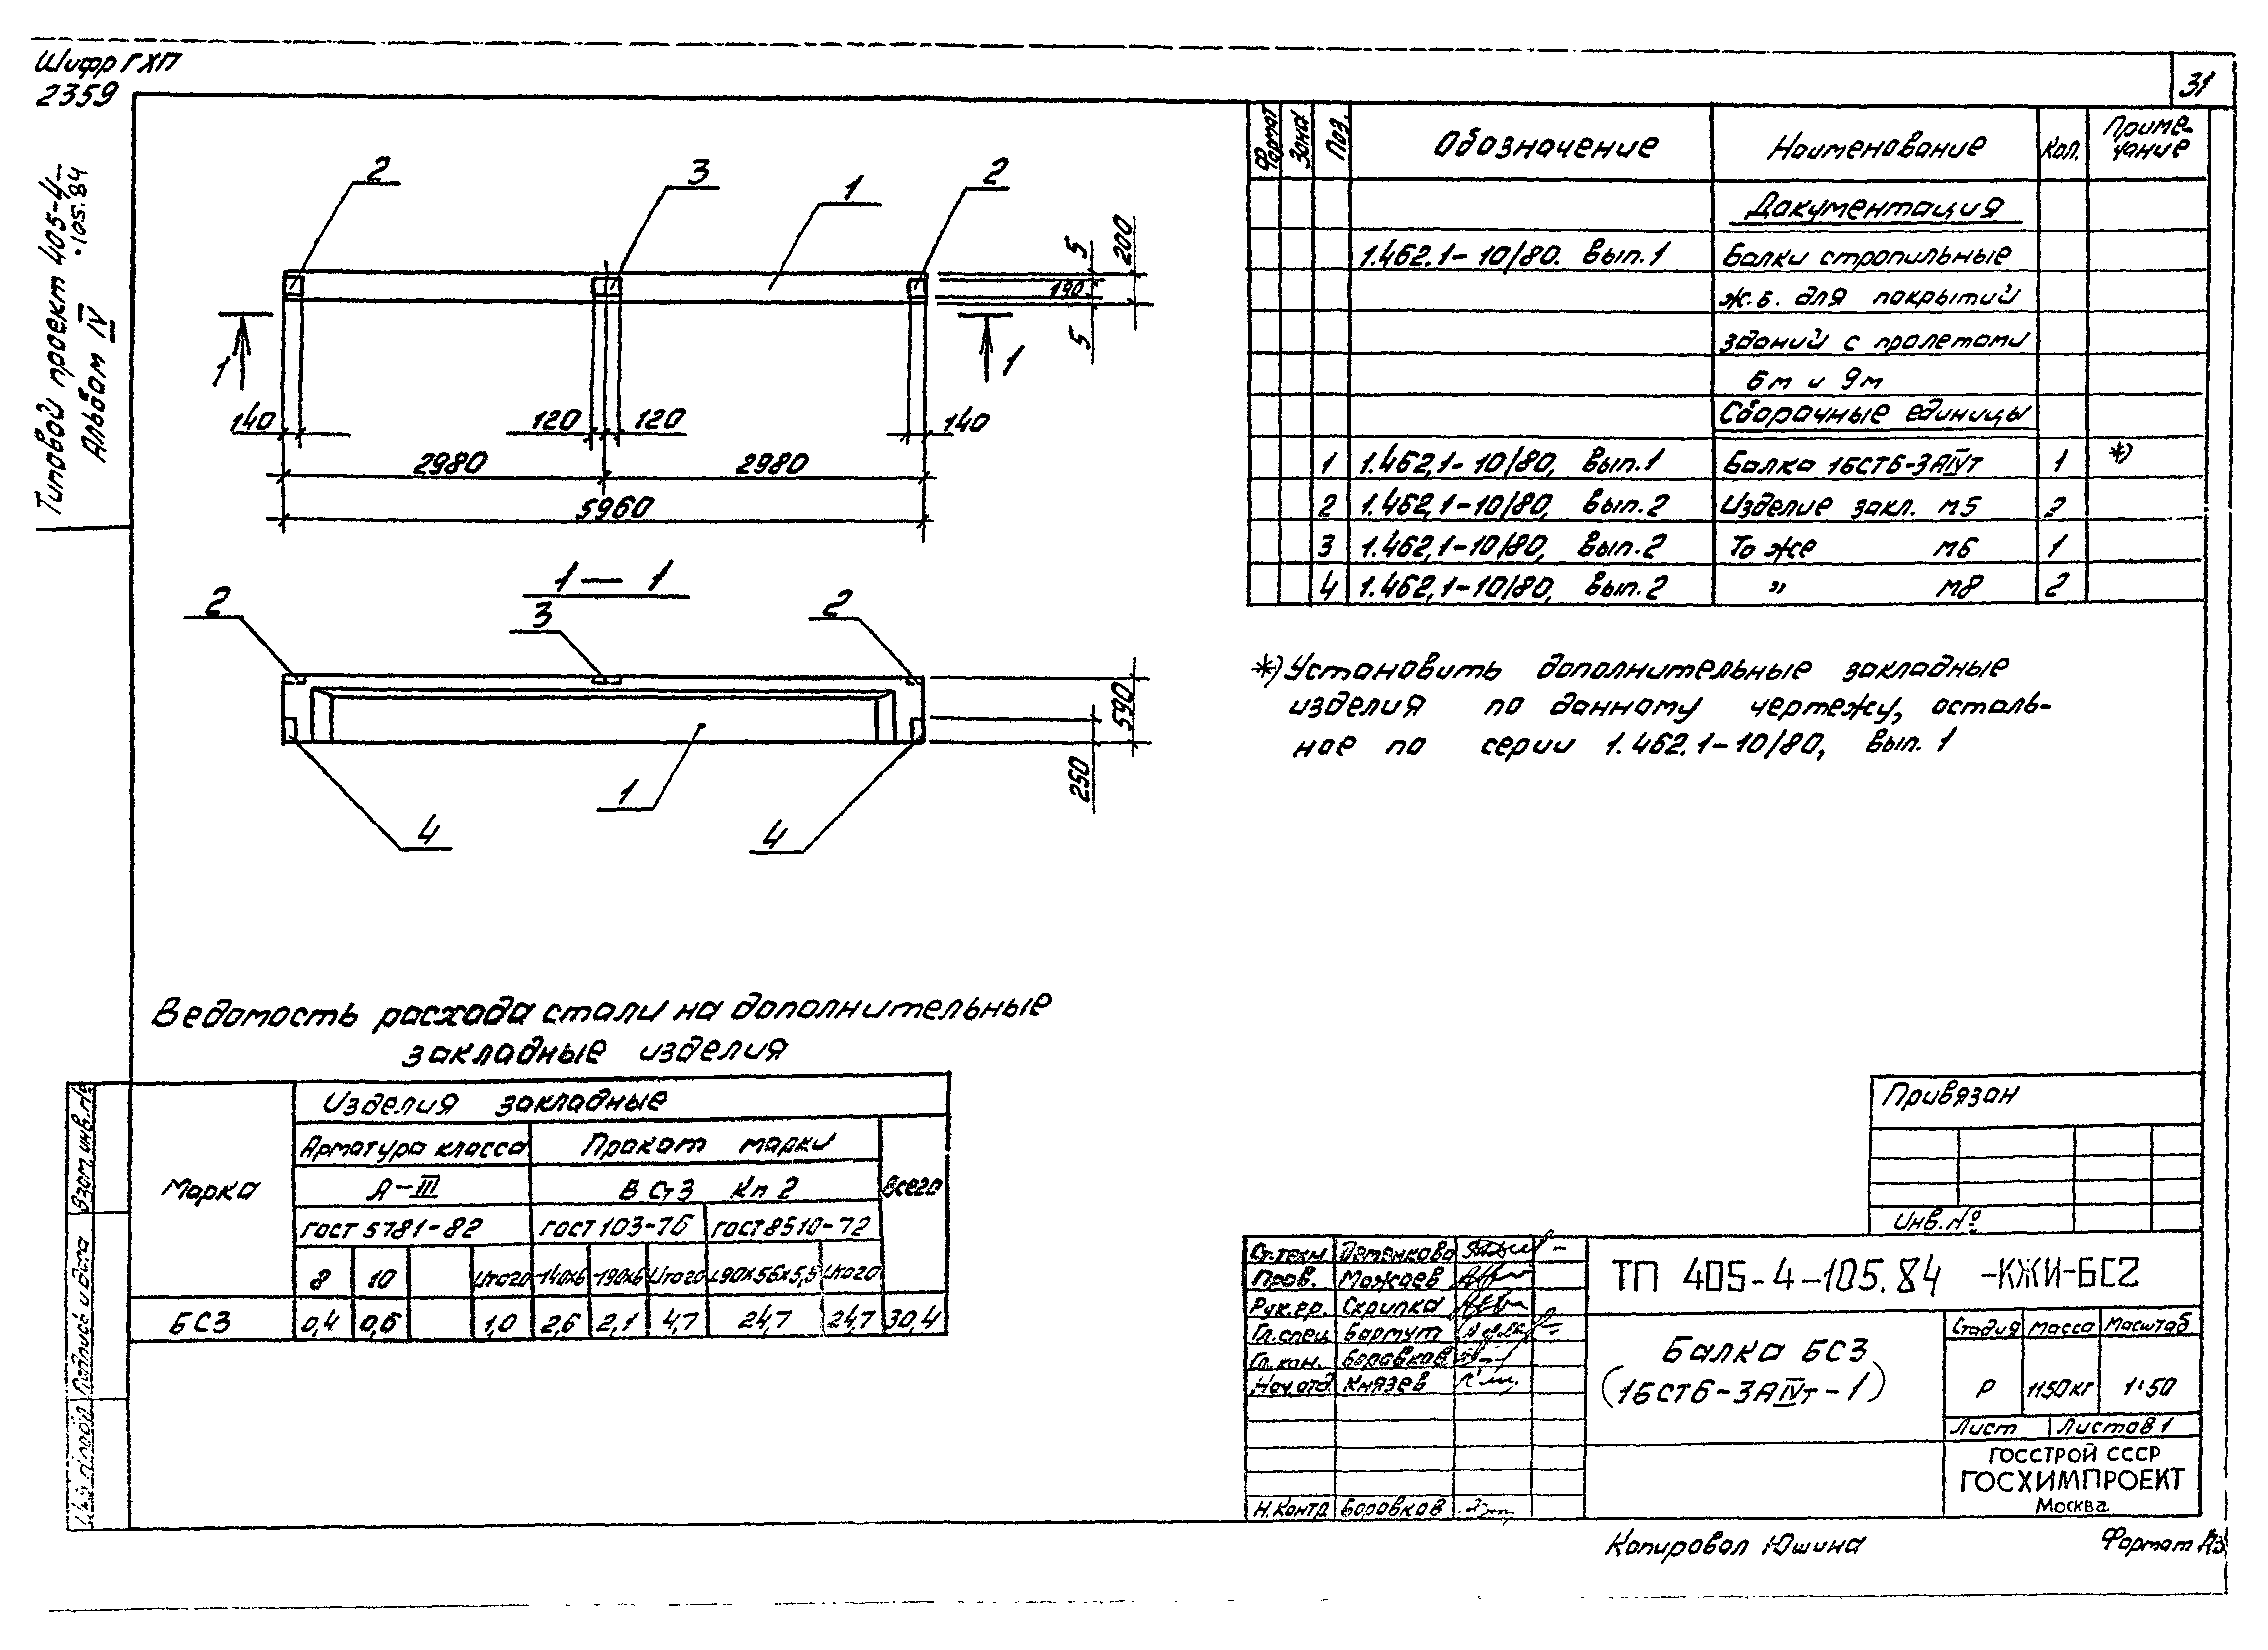 Шифр ГХП
2359
31
Типовой проект 405-4-
-105.84
Альбом IV
2
3
1
2
5
200
190
5
1
1
140
120
120
140
2980
2980
5960
1 — 1
2
3
2
590
250
1
4
4
Формат Зона Поз. Обозначение Наименование Кол. Приме-
чание
Документация
1.462.1-10/80. Вып.1 Балки стропильные
ж.б. для покрытий
зданий с пролетами
6м и 9м
Сборочные единицы
1 1.462,1-10/80, вып.1 Балка 1БСТ6-3АIVт 1 *)
2 1.462,1-10/80, вып.2 Изделие закл. м5 2
3 1.462,1-10/80, вып.2 То же м6 1
4 1.462,1-10/80, вып.2 " м8 2
*) Установить дополнительные закладные
изделия по данному чертежу, осталь-
ное по серии 1.462.1-10/80, вып. 1
Ведомость расхода стали на дополнительные
закладные изделия
Марка
Изделия закладные
Арматура класса Прокат марки
Всего
А-III В Ст3 Кп 2
ГОСТ 5781-82 ГОСТ 103-76 ГОСТ 8510-72
8 10 Итого -140х6 -190х6 Итого L90х56х5,5 Итого
БС3 0,4 0,6 1,0 2,6 2,1 4,7 24,7 24,7 30,4
Взам.инв.№
Подпись и дата
Привязан
Инв.№
Ст.техн
Пров. Можаев
Рук.гр. Скрипка
Гл.спец. Бартут
Гл.кон. Боровков
Нач.отд. Князев
Н.Контр. Боровков
ТП 405-4-105.84 -КЖИ-БС2
Балка БС3
(1БСТ6-3АIVт-1)
Стадия Масса Масштаб
Р 1150кг 1:50
Лист Листов 1
ГОССТРОЙ СССР
ГОСХИМПРОЕКТ
Москва
Копировал Юшина
Формат А3